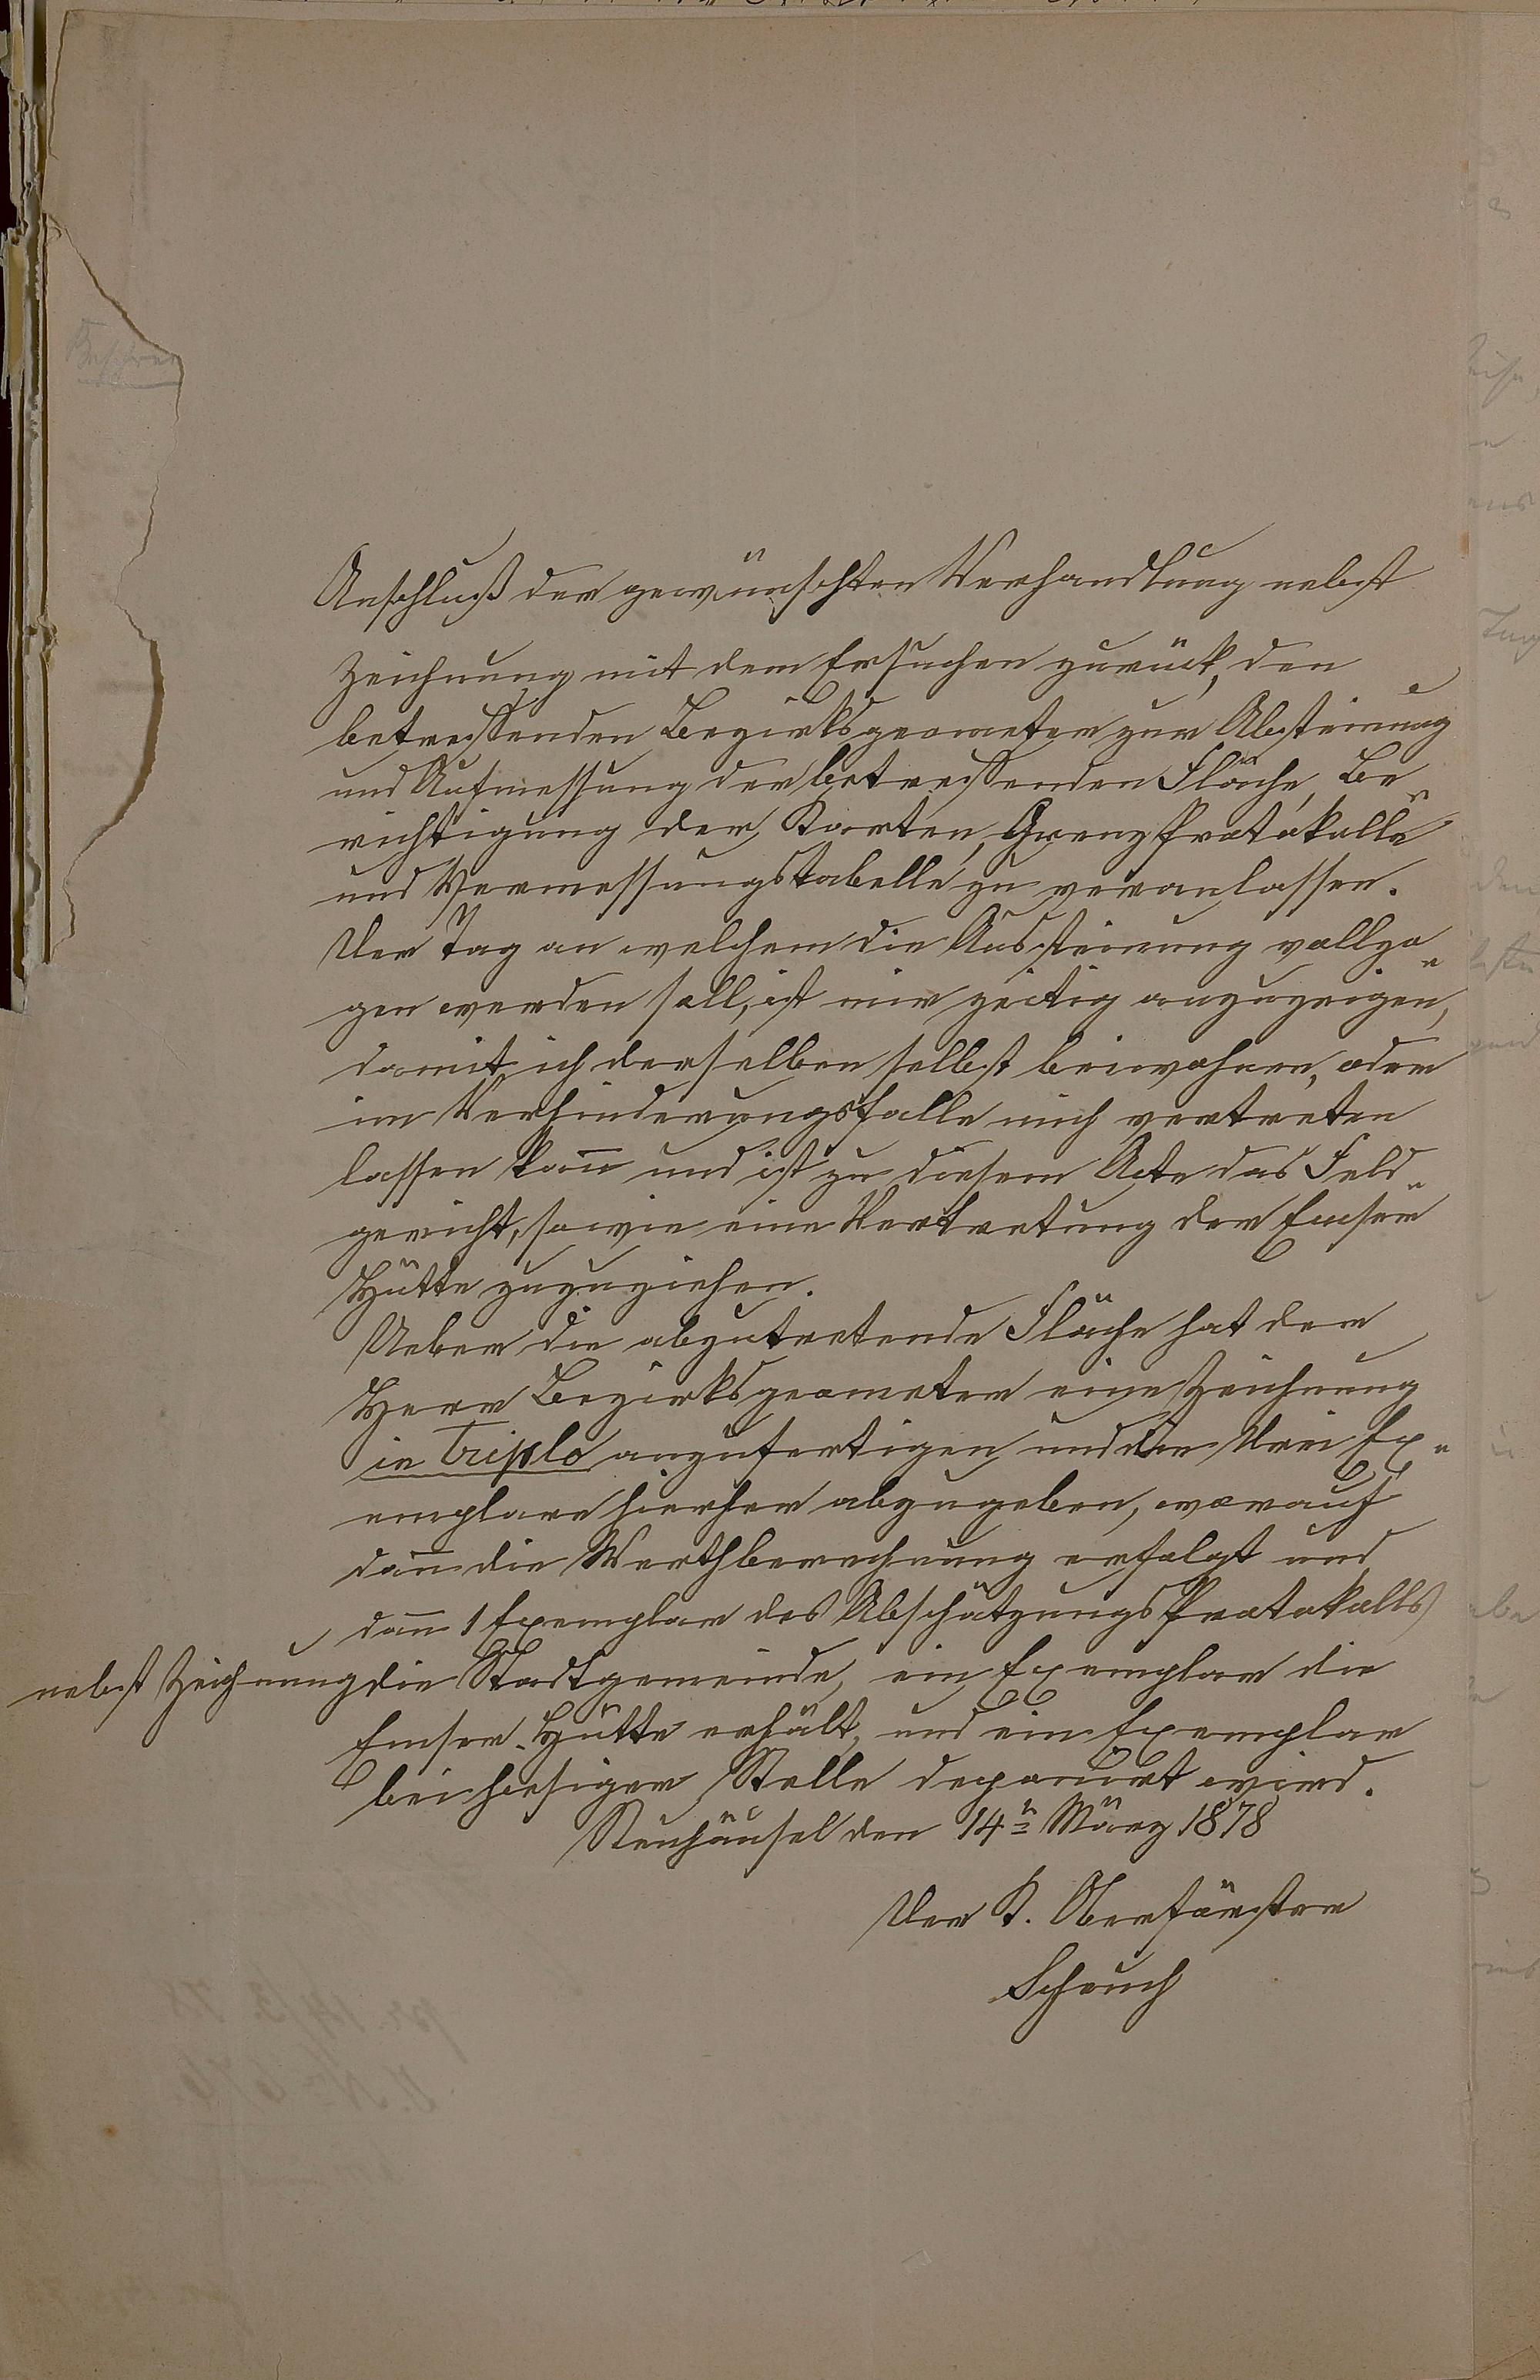 Anschluß der gewünschten Verhandlung nebst
Zeichnung mit dem Ersuchen zurück, den
betreffenden Bezirksgeometer zur Absteinung
und Aufmessung der betreffenden Fläche, Be-
richtigung der Karten, Grenzprotokolle
und Vermessungstabelle zu veranlassen.
Der Tag an welchem die Aussteinung vollzo-
gen werden soll, ist mir zeitig anzuzeigen,
damit ich derselben selbst beiwohnen, oder
im Verhinderungsfalle mich vertreten
lassen kann und ist zu diesem Acte das Feld-
gericht, sowie eine Vertretung der Emser
Hütte zuzuziehen.
Ueber die abzutretende Fläche hat der
Herr Bezirksgeometer eine Zeichnung
in Triplo anzufertigen und die drei Ex-
emplare hierher abzugeben, worauf
dann die Werthberechnung erfolgt und
dann 1 Exemplar des Abschätzungsprotokolls
nebst Zeichnung die Stadtgemeinde, ein Exemplar die
Emser-Hütte erhält, und ein Exemplar
bei hiesiger Stelle deponirt wird.
Neuhäusel den 14n März 1878
Der K. Oberförster
Schauch